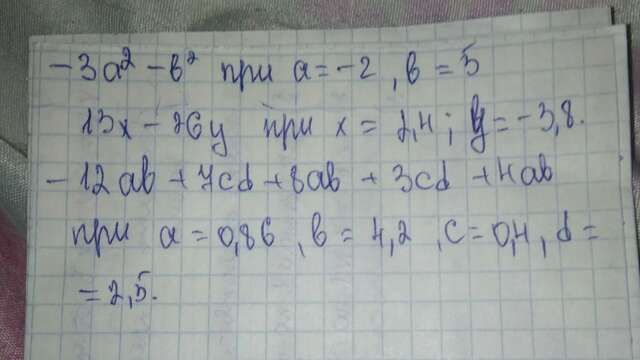 -3a² - в² при a = -2, в = 5
13x - 26y при x = 2,4; y = -3,8.
-12ав + 7cd + 8ав + 3cd + 4ав
при a = 0,86, в = 4,2, c = 0,4, d =
= 2,5.